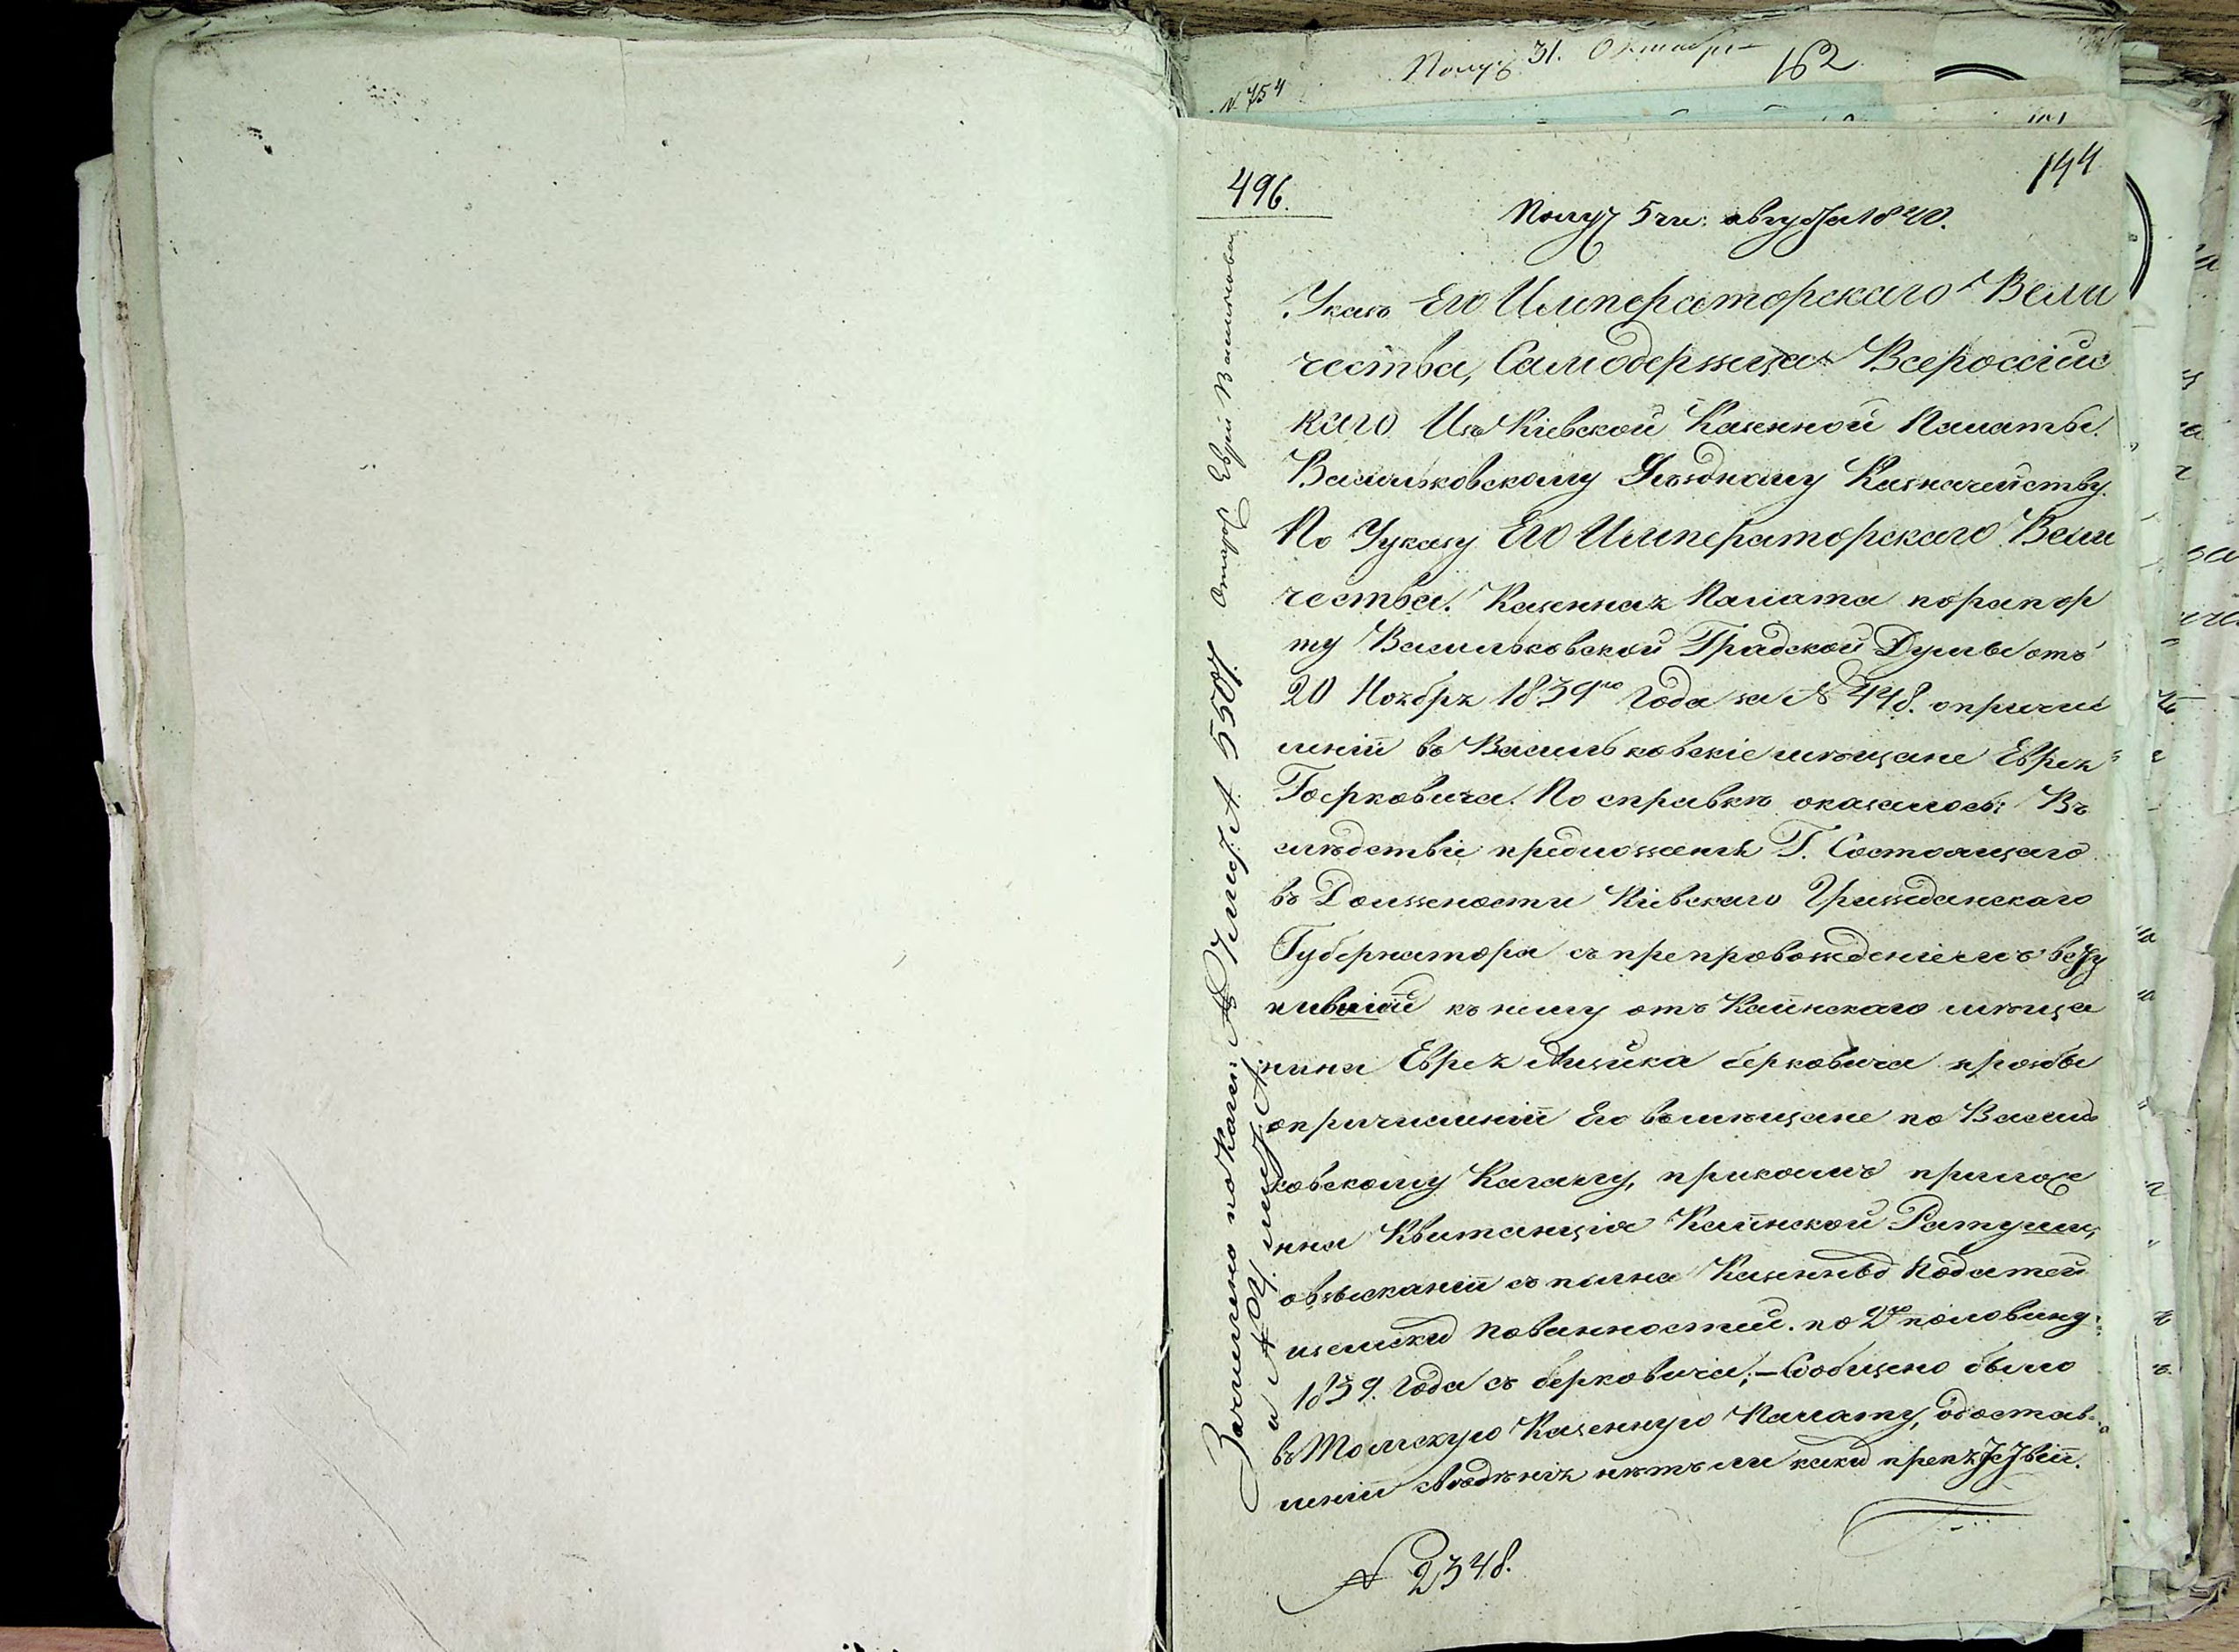 Получ 31. Октября
162
N. 754
144
496.
Получ 5 чи: августа 1840.
Указъ Его Императорскаго Вели
чества, Самодержца Всероссiйс
каго Изъ Кiевской Казенной Палаты.
Васильковскому Уѣздному Казначейству.
По Указу Его Императорскаго Вели
чества. Казенная Палата по рапор
ту Васильковской Градской Думы отъ
20 Ноября 1839го Года за № 448. опричис
ленiи въ Васильковскiе мѣщане Еврея
Берковича. По справкѣ оказалось: Въ
слѣдствiе предложенiя Г. Состоящаго
въ Должности Кiевскаго Гражданскаго
Губернатора съ препровожденiемъ всту
пившiй къ нему отъ Каинскаго мѣща
нина Еврея Айзика берковича прозьбы
опричисленiи Его въ мѣщане по Василь
ковскому Кагалу, прикоемъ приложе
нна Квитанцiя Каинской Ратуши,
овзысканiи съ полна Казенныхъ Податей
иземскихъ повинностей. по 2ю половину
1839. Года съ берковича; – Сообщено было
въ Томскую Казенную Палату, одостав
ленiи свѣдѣнiя нѣтъ ли какихъ препятствiй.
№ 2348.
Зачислено по Кагалу